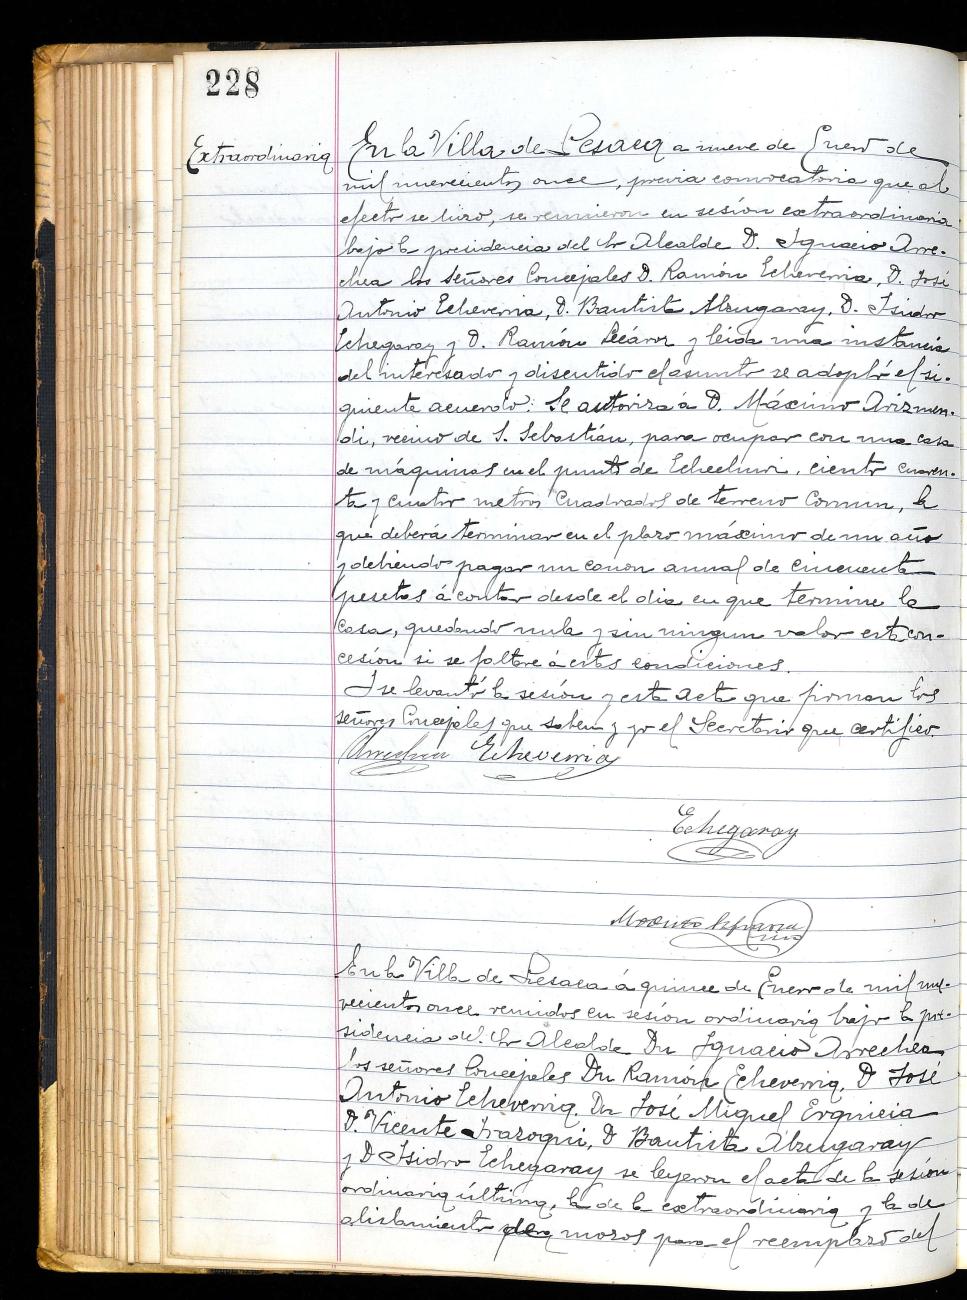 228
Extraordinaria
En la Villa de Lesaca a nueve de Enero de
mil nuevecientos once, previa convocatoria que al
efecto se hizo, se reunieron en sesión extraordinaria
bajo la presidencia del Sr Alcalde D. Ignacio Arre-
chea los señores Concejales D. Ramón Echeverria, D. José
Antonio Echeverria, D. Bautista Alzugaray, D. Isidro
Echegaray y D. Ramón Lécároz y leida una instancia
del interesado y discutido el asunto se adoptó el si-
guiente acuerdo: Se autoriza á D. Máximo Arizmen-
di, vecino de S. Sebastián, para ocupar con una casa
de máquinas en el punto de , ciento cuaren-
ta y cuatro metros cuadrados de terreno comun, la
que deberá terminar en el plazo máximo de un año
y debiendo pagar un canon anual de cincuenta
pesetas á contar desde el dia en que termine la
casa, quedando nula y sin ningun valor esta con-
cesión si se faltare á estas condiciones.
I se levantó la sesión y esta acta que firman los
señores Concejales que saben y yo el Secretario que certifico
Arrechea Echeverria
Echegaray
En la Villa de Lesaca á quince de Enero de mil nue-
vecientos once reunidos en sesión ordinaria bajo la pre-
sidencia del Sr Alcalde Dn Ignacio Arrechea
los señores Concejales Dn Ramón Echeverria, D José
Antonio Echeverria, Dn José Miguel Erquicia
D. Vicente Irazoqui, D Bautista Alzugaray
y D Isidro Echegaray se leyeron el acta de la sesión
ordinaria última, la de la extraordinaria y la de
alistamiento mozos para el reemplazo del